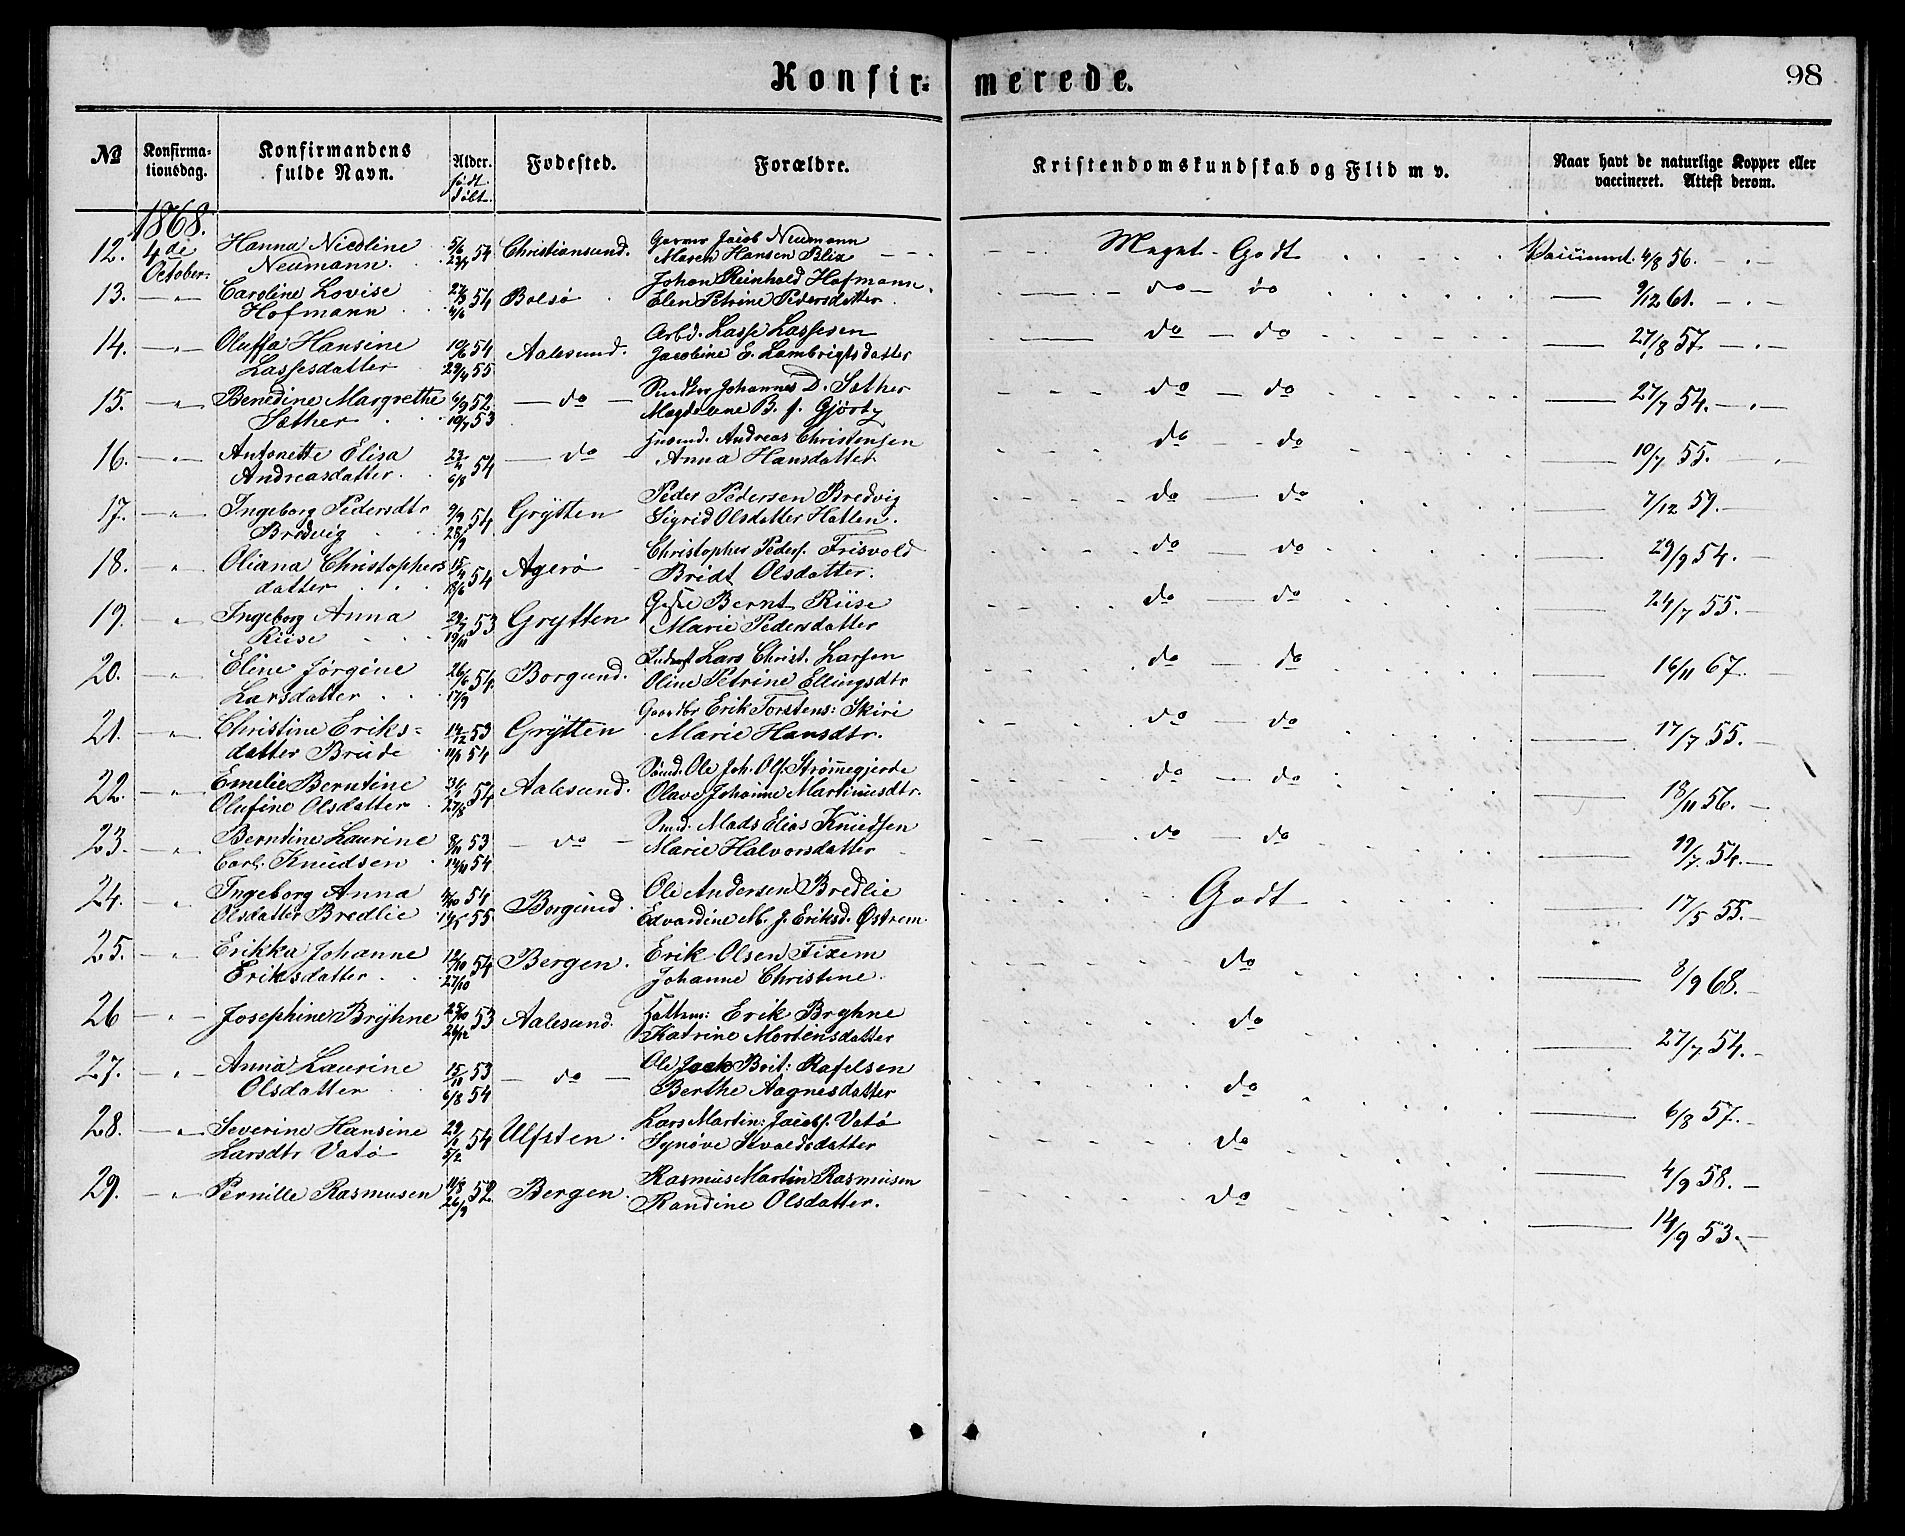 Konfir-
merede.
98
№
Konfirma-
tionsdag.
Konfirmandens
fulde Navn.
Alder.
født
døbt.
Fødested.
Forældre.
Kristendomskundskab og Flid m v.
Naar havt de naturlige Kopper eller
vaccineret. Attest derom.
1868.
12. 4de October Hanna Nicoline Neumann. 5/6 54 Christiansund. Garver Jacob Neumann
Maren Hansen Blix
Meget Godt Vaccineret 4/8 56.
13. — " — Caroline Lovise Hofmann 54 Bolsø Johan Reinhold Hofmann.
Elen Petrine Pedersdatter.
do — do 9/12 61.
14. — " — Oluffa Hansine Lassesdatter 10/6 54 29/4 55 Aalesund. Arbd. Lasse Lassesen
Jacobine E. Lambrigtsdatter
do — do 27/8 57.
15. — " — Benedine Margrethe Sæther 6/9 52. 19/7 53 — do — Johannes D. Sæther
Magdalene B. f. Gjørtz
do — do 27/7 54.
16. — " — Antonette Elisa Andreasdatter. 6/8 54 — do — Andreas Christensen
Anna Hansdatter
do — do 10/7 55.
17. — " — Ingeborg Pedersdtr Bredvig 54 Grytten Peder Pedersen Bredvig
Sigrid Olsdatter Hatlen.
do — do 7/12 59.
18. — " Oliana Christophers datter 54 Agerø Christopher Peders. Frisvold
Bridt Olsdatter.
do — do 29/9 54.
19. — " Ingeborg Anna Riise 53 Grytten Bernt Riise
Marie Pedersdatter
do — do 24/7 55.
20. — " Eline Jørgine Larsdatter 26/6 17/9 54. Borgund. Inderst Lars Christ. Larsen
Oline Petrine Ellingsdtr
do — do 16/11 67.
21. — " — Christine Eriks= datter Brude 14/12 53 54 Grytten Gaardbr Erik Torstens: Skiri
Marie Hansdtr.
do — do 17/7 55.
22. — " — Emelie Berntine Olufine Olsdatter 54 Aalesund. Ole Joh. Ols. Strømmegjerde
Olave Johanne Martinusdtr.
do — do 18/11 56.
23. — " Berntine Laurine Carl. Knudsen 53 54 — do — Smed. Mads Elias Knudsen
Marie Halvorsdatter
do — do 54.
24. — " Ingeborg Anna Olsdatter Bredlie 54 55 Borgund Ole Andersen Bredlie
Edvardine M. J. Eriksd. Østrem
Godt 17/5 55.
25. — " Erikka Johanne Eriksdatter 27/10 54 Bergen. Erik Olsen Fixem
Johanne Christine.
do 8/9 68.
26 — " — Josephine Bryhne 25/10 26/12 53 Aalesund. Erik Bryhne
Katrine Mortensdatter
do 27/7 54.
27. — " — Anna Laurine Olsdatter 53 6/8 54 — do — Ole Brit: Rafelsen
Berthe Aagnesdatter
do 6/8 57.
28. — " — Severine Hansine Larsdtr Vatø 5/2 54 Ulfsten. Lars Martin: Jacobs. Vatø
Synøve Sevaldsdatter
do 4/9 58.
29. — " Pernille Rasmusen 11/8 26/9 52. Bergen. Rasmus Martin Rasmusen
Randine Olsdatter.
do 14/9 53.